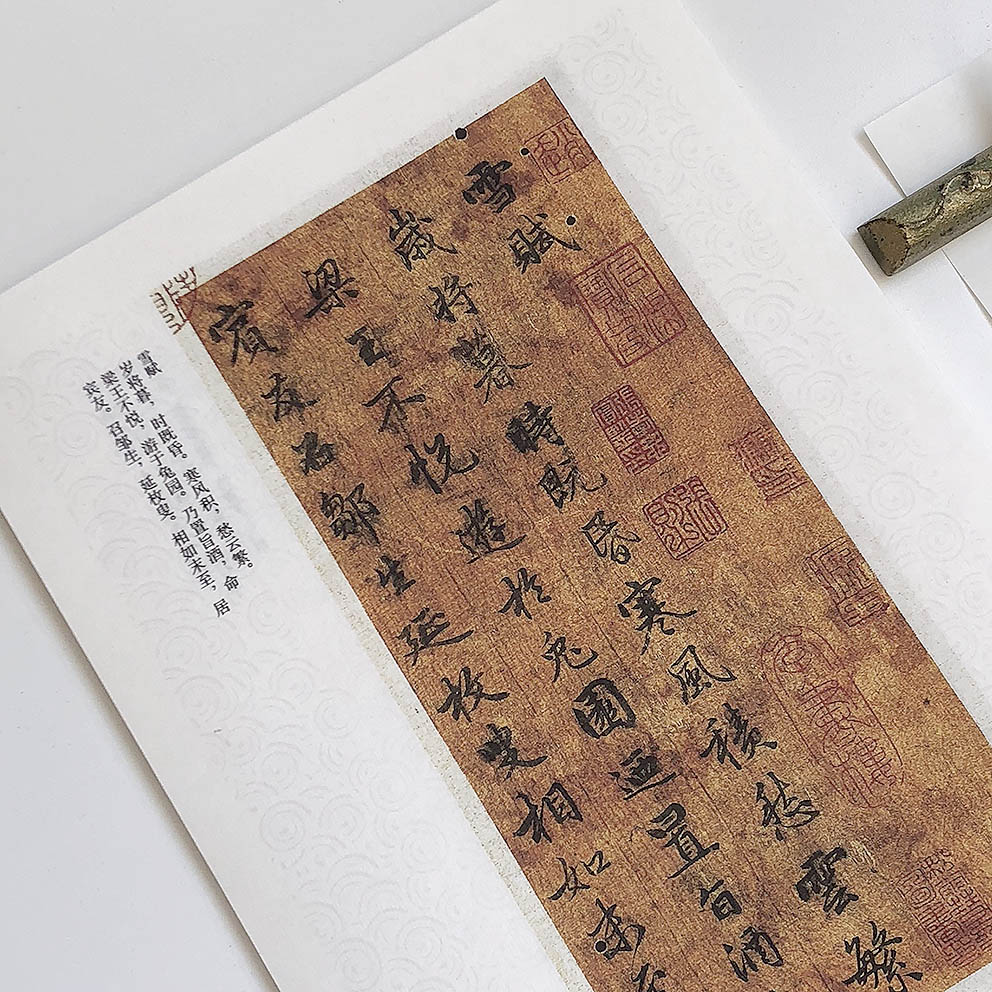 雪賦
歲将暮時既昏寒風積愁雲繁
梁王不悅遊於兔園迺置旨酒
賓友召鄒生延枚叟相如未至
雪赋
岁将暮，时既昏。寒风积，愁云繁。
梁王不悦，游于兔园。乃置旨酒，命
宾友。召邹生，延枚叟。相如未至，居